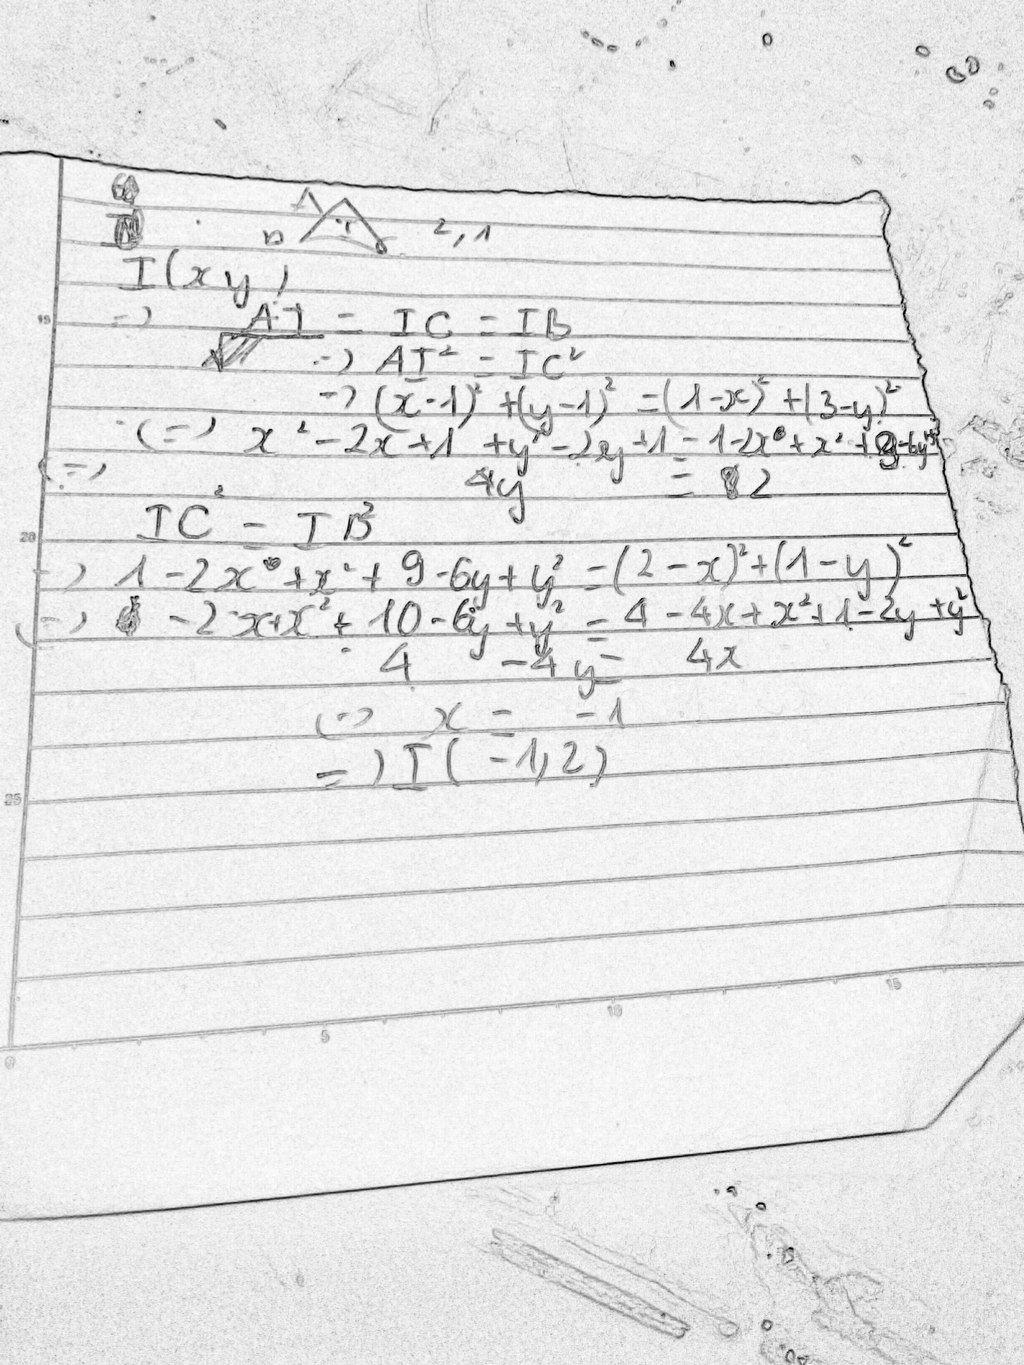 A
I
B 2,1
I(x y)
=> AI = IC = IB
=> AI² = IC²
=> (x-1)² + (y-1)² = (1-x)² + (3-y)²
(=> x² - 2x + 1 + y² - 2y + 1 = 1 - 2x + x² + 9 - 6y + y²
(=> 4y = 2
IC² = IB²
=> 1 - 2x + x² + 9 - 6y + y² = (2-x)² + (1-y)²
(=> -2x + x² + 10 - 6y + y² = 4 - 4x + x² + 1 - 2y + y²
4 - 4y = 4x
(=> x = -1
=> I(-1,2)
15
20
25
0 5 10 15